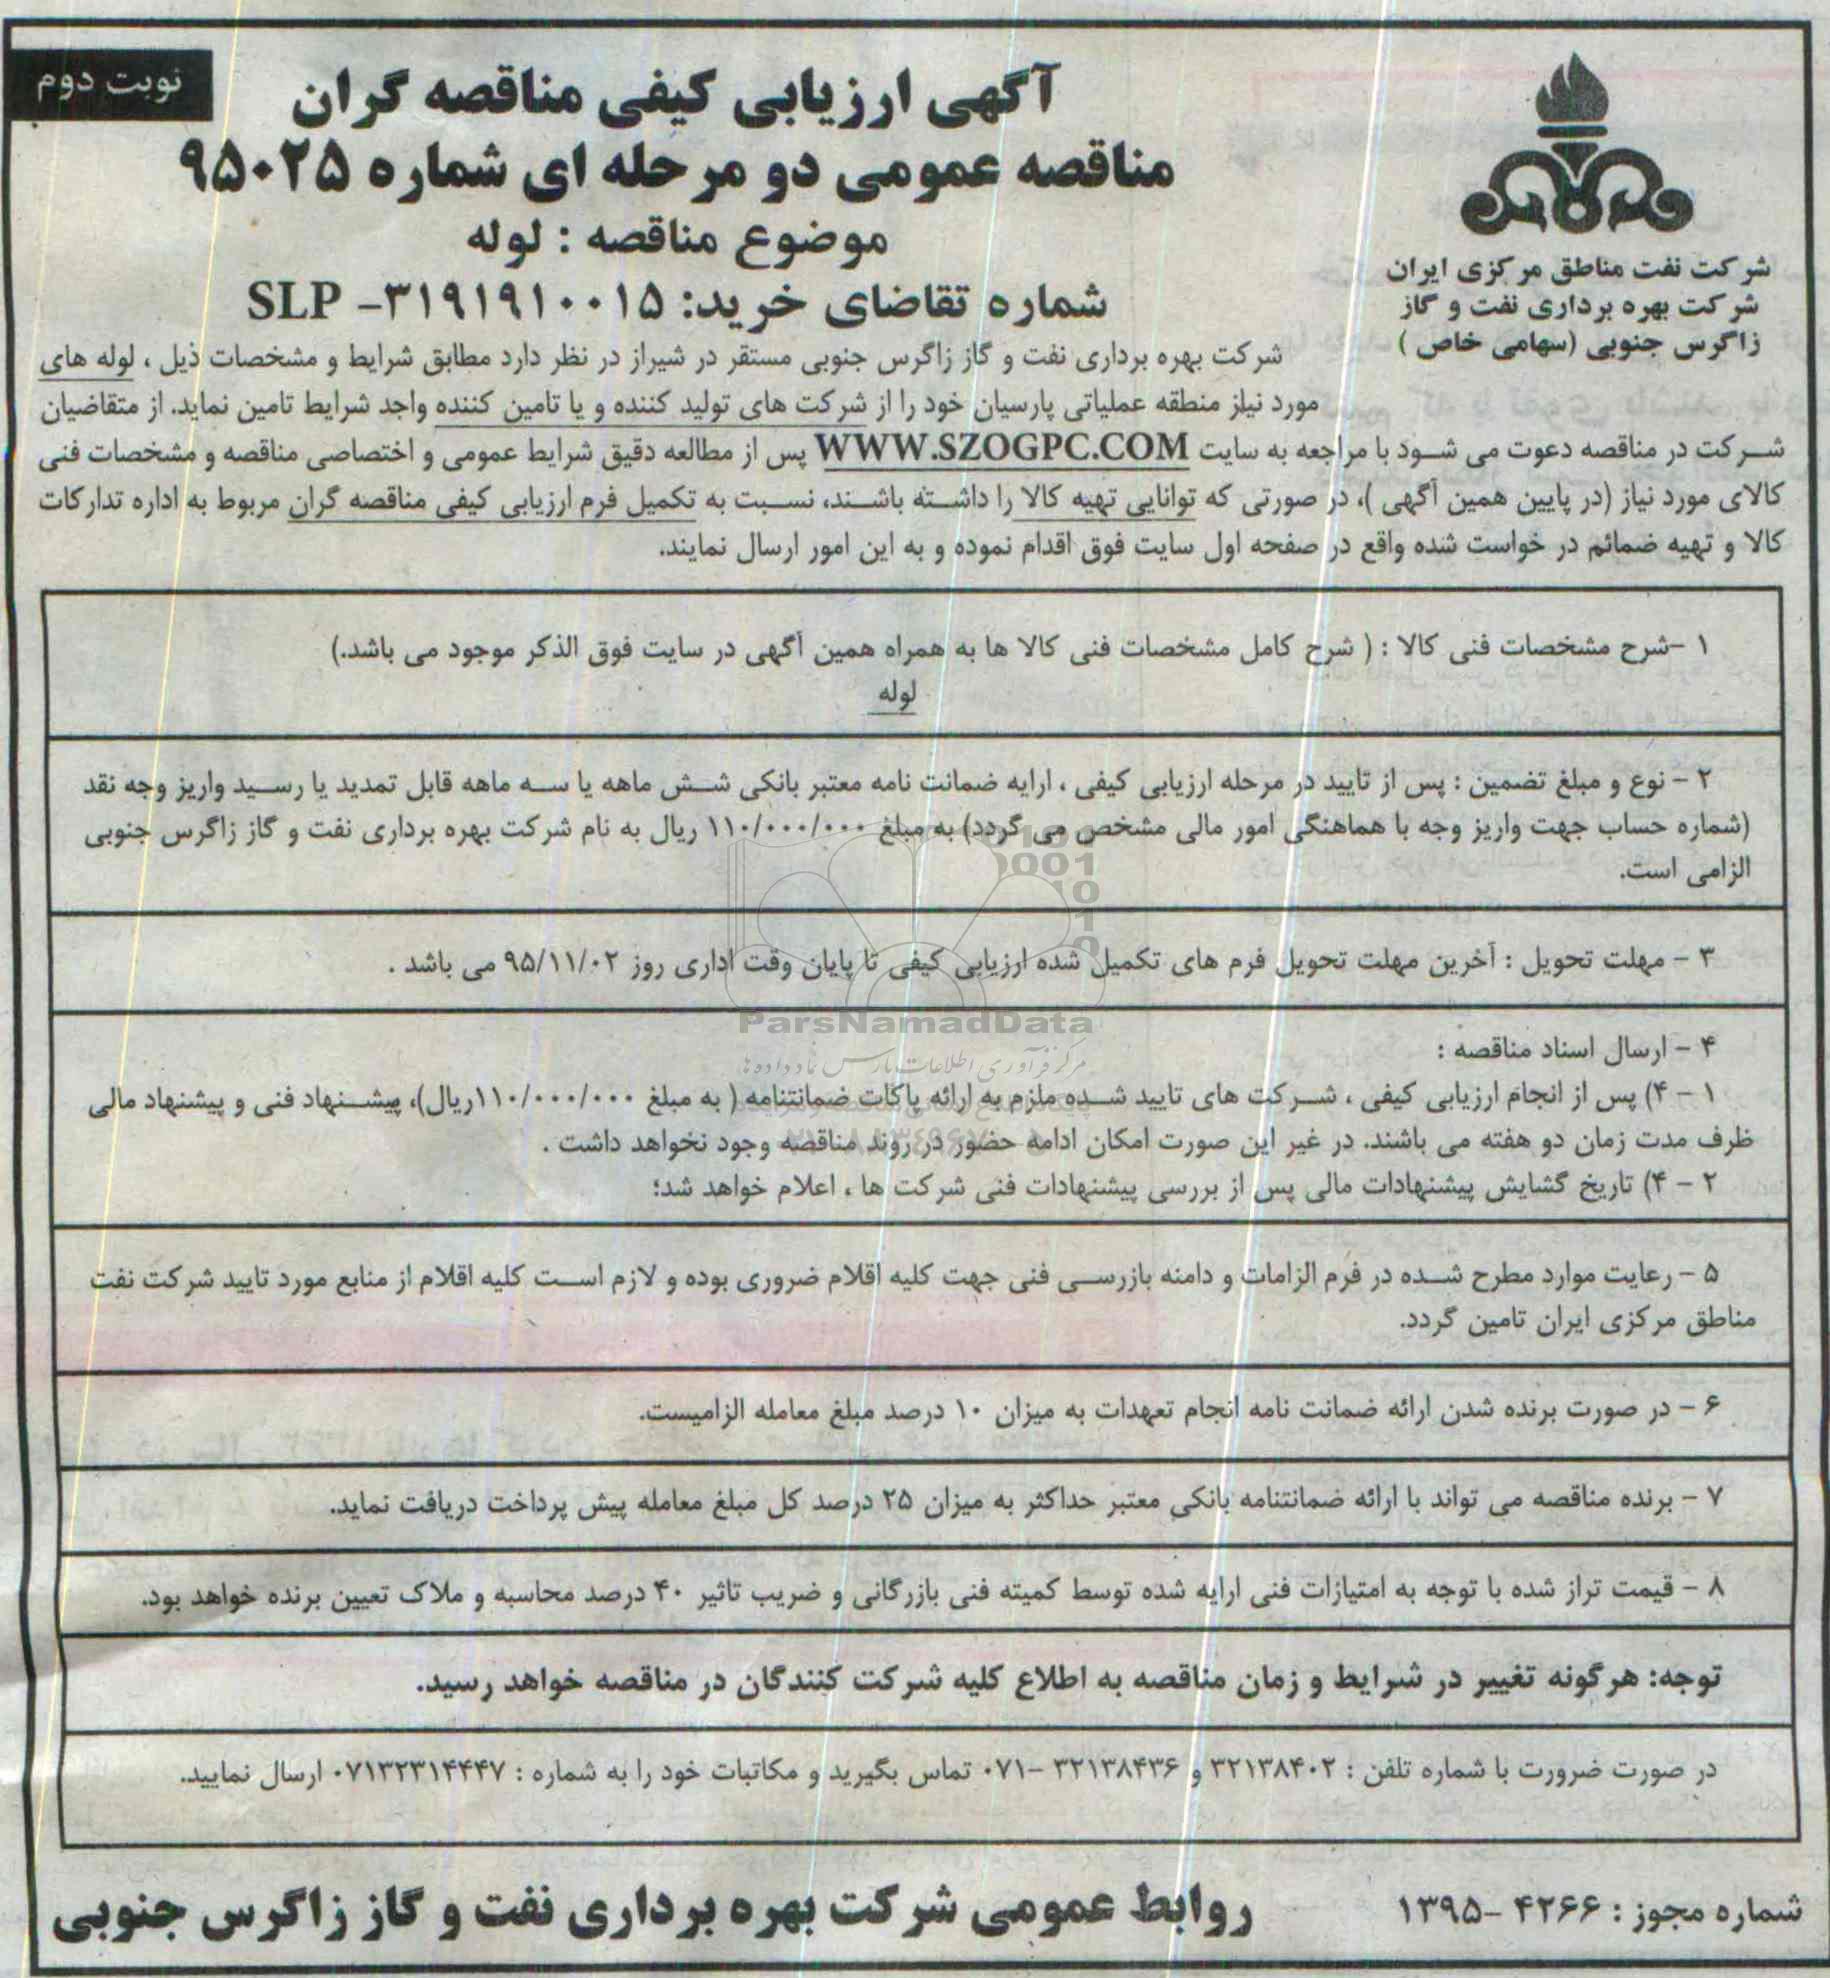 نوبت دوم
آگهی ارزیابی کیفی مناقصه گران
مناقصه عمومی دو مرحله ای شماره ۹۵۰۲۵
موضوع مناقصه : لوله
شماره تقاضای خرید: SLP -۳۱۹۱۹۱۰۰۱۵
شرکت نفت مناطق مرکزی ایران
شرکت بهره برداری نفت و گاز
زاگرس جنوبی (سهامی خاص )
شرکت بهره برداری نفت و گاز زاگرس جنوبی مستقر در شیراز در نظر دارد مطابق شرایط و مشخصات ذیل ، لوله های
مورد نیاز منطقه عملیاتی پارسیان خود را از شرکت های تولید کننده و یا تامین کننده واجد شرایط تامین نماید. از متقاضیان
شرکت در مناقصه دعوت می شود با مراجعه به سایت WWW.SZOGPC.COM پس از مطالعه دقیق شرایط عمومی و اختصاصی مناقصه و مشخصات فنی
کالای مورد نیاز (در پایین همین آگهی )، در صورتی که توانایی تهیه کالا را داشته باشند، نسبت به تکمیل فرم ارزیابی کیفی مناقصه گران مربوط به اداره تدارکات
کالا و تهیه ضمائم در خواست شده واقع در صفحه اول سایت فوق اقدام نموده و به این امور ارسال نمایند.
۱ -شرح مشخصات فنی کالا : ( شرح کامل مشخصات فنی کالا ها به همراه همین آگهی در سایت فوق الذکر موجود می باشد.)
لوله
۲ - نوع و مبلغ تضمین : پس از تایید در مرحله ارزیابی کیفی ، ارایه ضمانت نامه معتبر بانکی شش ماهه یا سه ماهه قابل تمدید یا رسید واریز وجه نقد
(شماره حساب جهت واریز وجه با هماهنگی امور مالی مشخص می گردد) به مبلغ ۱۱۰/۰۰۰/۰۰۰ ریال به نام شرکت بهره برداری نفت و گاز زاگرس جنوبی
الزامی است.
۳ - مهلت تحویل : آخرین مهلت تحویل فرم های تکمیل شده ارزیابی کیفی تا پایان وقت اداری روز ۹۵/۱۱/۰۲ می باشد .
ParsNamadData
مرکز فرآوری اطلاعات پارس نماد داده ها
۴ - ارسال اسناد مناقصه :
۱ - ۴) پس از انجام ارزیابی کیفی ، شرکت های تایید شده ملزم به ارائه پاکات ضمانتنامه ( به مبلغ ۱۱۰/۰۰۰/۰۰۰ریال)، پیشنهاد فنی و پیشنهاد مالی
ظرف مدت زمان دو هفته می باشند. در غیر این صورت امکان ادامه حضور در روند مناقصه وجود نخواهد داشت .
۲ - ۴) تاریخ گشایش پیشنهادات مالی پس از بررسی پیشنهادات فنی شرکت ها ، اعلام خواهد شد؛
۵ - رعایت موارد مطرح شده در فرم الزامات و دامنه بازرسی فنی جهت کلیه اقلام ضروری بوده و لازم است کلیه اقلام از منابع مورد تایید شرکت نفت
مناطق مرکزی ایران تامین گردد.
۶ - در صورت برنده شدن ارائه ضمانت نامه انجام تعهدات به میزان ۱۰ درصد مبلغ معامله الزامیست.
۷ - برنده مناقصه می تواند با ارائه ضمانتنامه بانکی معتبر حداکثر به میزان ۲۵ درصد کل مبلغ معامله پیش پرداخت دریافت نماید.
۸ - قیمت تراز شده با توجه به امتیازات فنی ارایه شده توسط کمیته فنی بازرگانی و ضریب تاثیر ۴۰ درصد محاسبه و ملاک تعیین برنده خواهد بود.
توجه: هرگونه تغییر در شرایط و زمان مناقصه به اطلاع کلیه شرکت کنندگان در مناقصه خواهد رسید.
در صورت ضرورت با شماره تلفن : ۳۲۱۳۸۴۰۲ و ۳۲۱۳۸۴۳۶ -۰۷۱ تماس بگیرید و مکاتبات خود را به شماره : ۰۷۱۳۲۳۱۴۴۴۷ ارسال نمایید.
شماره مجوز : ۴۲۶۶ -۱۳۹۵
روابط عمومی شرکت بهره برداری نفت و گاز زاگرس جنوبی